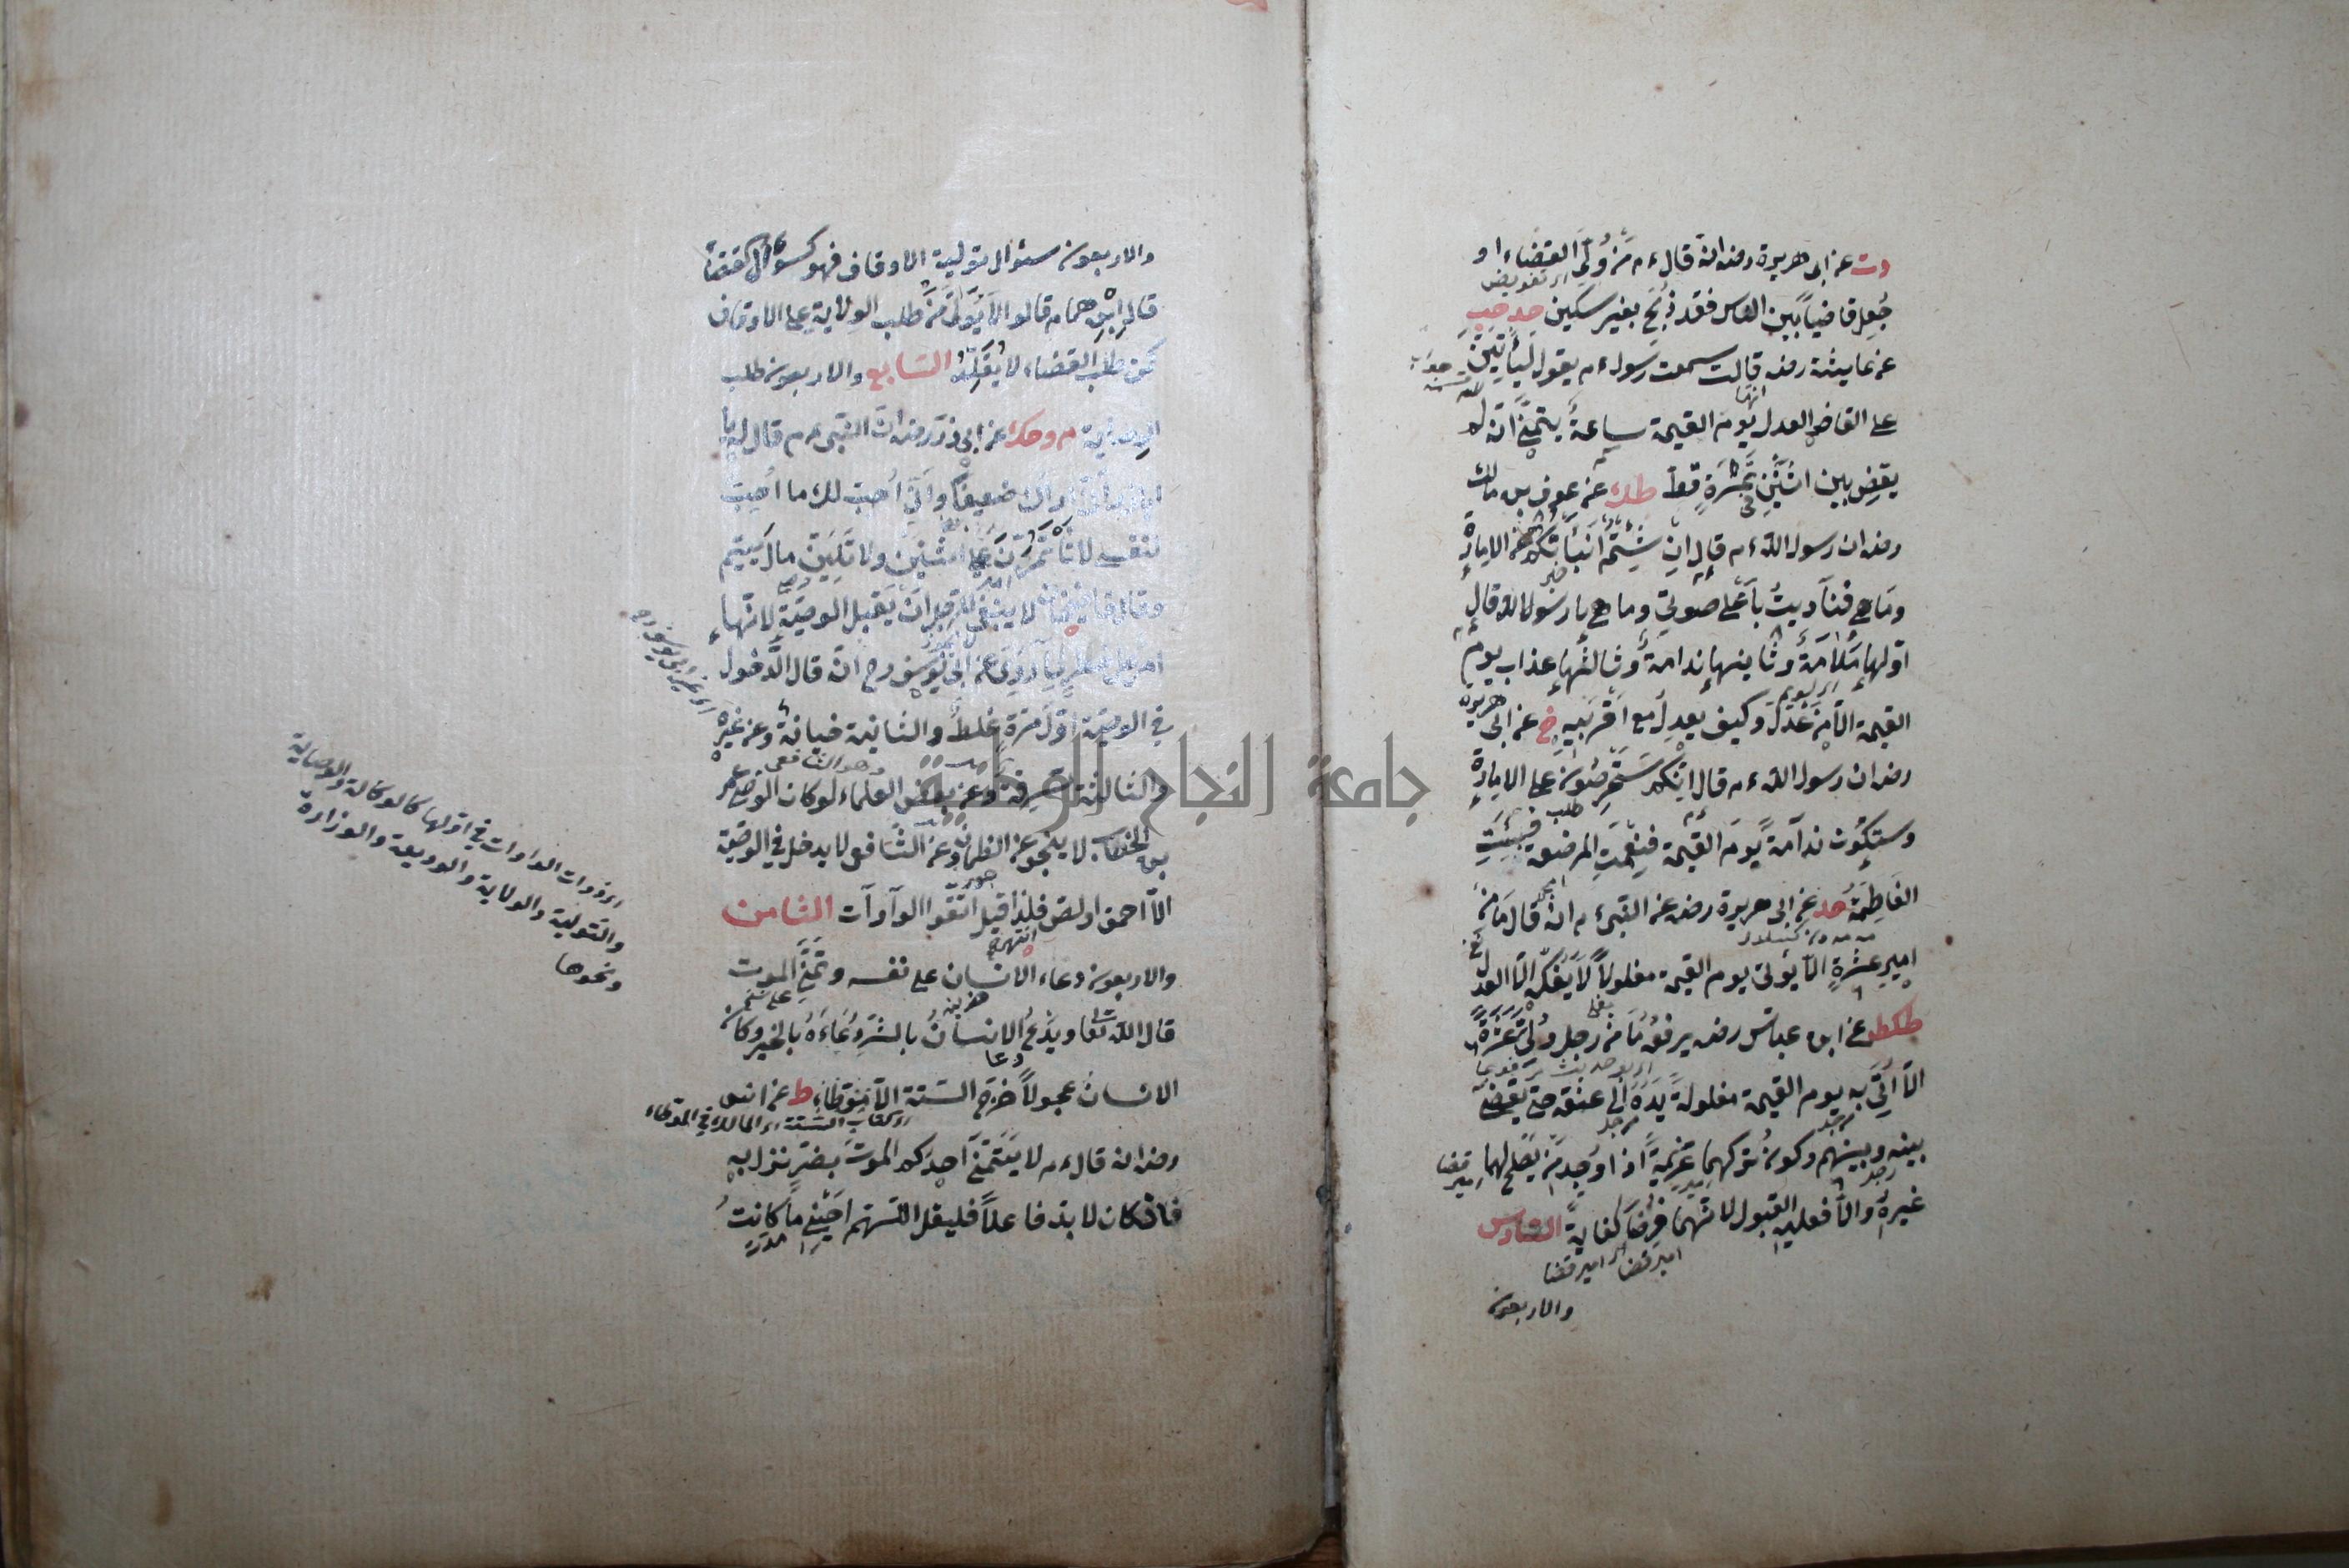 دت عن ابى هريرة رضه انه قال ءم من ولى القضاء او
اى تفويض
جُعِل قاضياً بين الناس فقد ذُبِحَ بغير سكين حد حب
عن عايشة رضه قالت سمعت رسول ءم يقول ليأتينّ
على القاضى العدل يوم القيمة ساعة يتمنى انه لم
يقض بين اثنين فى تمرة قط طك عن عوف بن مالك
رضه ان رسول الله ءم قال ان شئتم انبأتكم عن الامارة
وما هى فناديت بأعلى صوتى وما هى يا رسول الله قال
اولها ملامة وثانيها ندامة وثالثها عذاب يوم
القيمة الا من عدل وكيف يعدل مع اقربيه خ عن ابى هريرة
رضه ان رسول الله ءم قال انكم ستحرصون على الامارة
طلب
وستكون ندامة يوم القيمة فنعمت المرضعة فبئست
الفاطمة حد عن ابى هريرة رضه عن النبى ءم انه قال ما من
امير عشرة الا يؤتى يوم القيمة مغلولاً لا يفكه الا العدل
طكط عن ابن عباس رضه يرفعه ما من رجل ولى عشرة
الا اتى به يوم القيمة مغلولة يده الى عنقه حتى يقضى
بينه وبينهم وكون تركهما عزيمة اذا وجد من يصلح لهما
غيره والا فعليه القبول لانهما فرضا كفاية السادس
امير قضا امير قضا
والاربعون
والاربعون سئوال تولية الاوقاف فهو كسؤال القضا
قال ابن همام قالوا لا يولى من طلب الولاية على الاوقاف
كمن طلب القضاء لا يقلد السابع والاربعون طلب
الوصاية م وحك عن ابى ذر رضه ان النبى ءم قال له يا
ابا ذر انى اراك ضعيفا وانى احب لك ما احب
لنفسى لا تأمرن على اثنين ولا تلين مال يتيم
وقال قاضيخان لا ينبغى للرجل ان يقبل الوصية لانها
امر على خطر لما روى عن ابى يوسف رح انه قال الدخول
فى الوصية اول مرة غلط والثانية خيانة وعن غيره
وهو الشافعى
والثالثة سرقة وعن بعض العلماء لو كان الوصى عمر
بن الخطاب لا ينجو عن الضمان وعن الشافعى لا يدخل فى الوصية
الا احمق او لص فلذا قيل اتقوا الواوات الثامن
انتهى
والاربعون دعاء الانسان على نفسه وتمنى الموت
قال الله تعا ويدع الانسان بالشر دعاءه بالخير وكان
الانسان عجولاً خرج الستة الا ط عن انس
رضه انه قال ءم لا يتمنين احدكم الموت بضر نزل به
فان كان لا بد فاعلاً فليقل اللهم احينى ما كانت
اى ذوات الواوات فى اولها كالوكالة والوصاية
والتولية والولاية والوديعة والوزارة
ونحوها
جامعة النجاح الوطنية